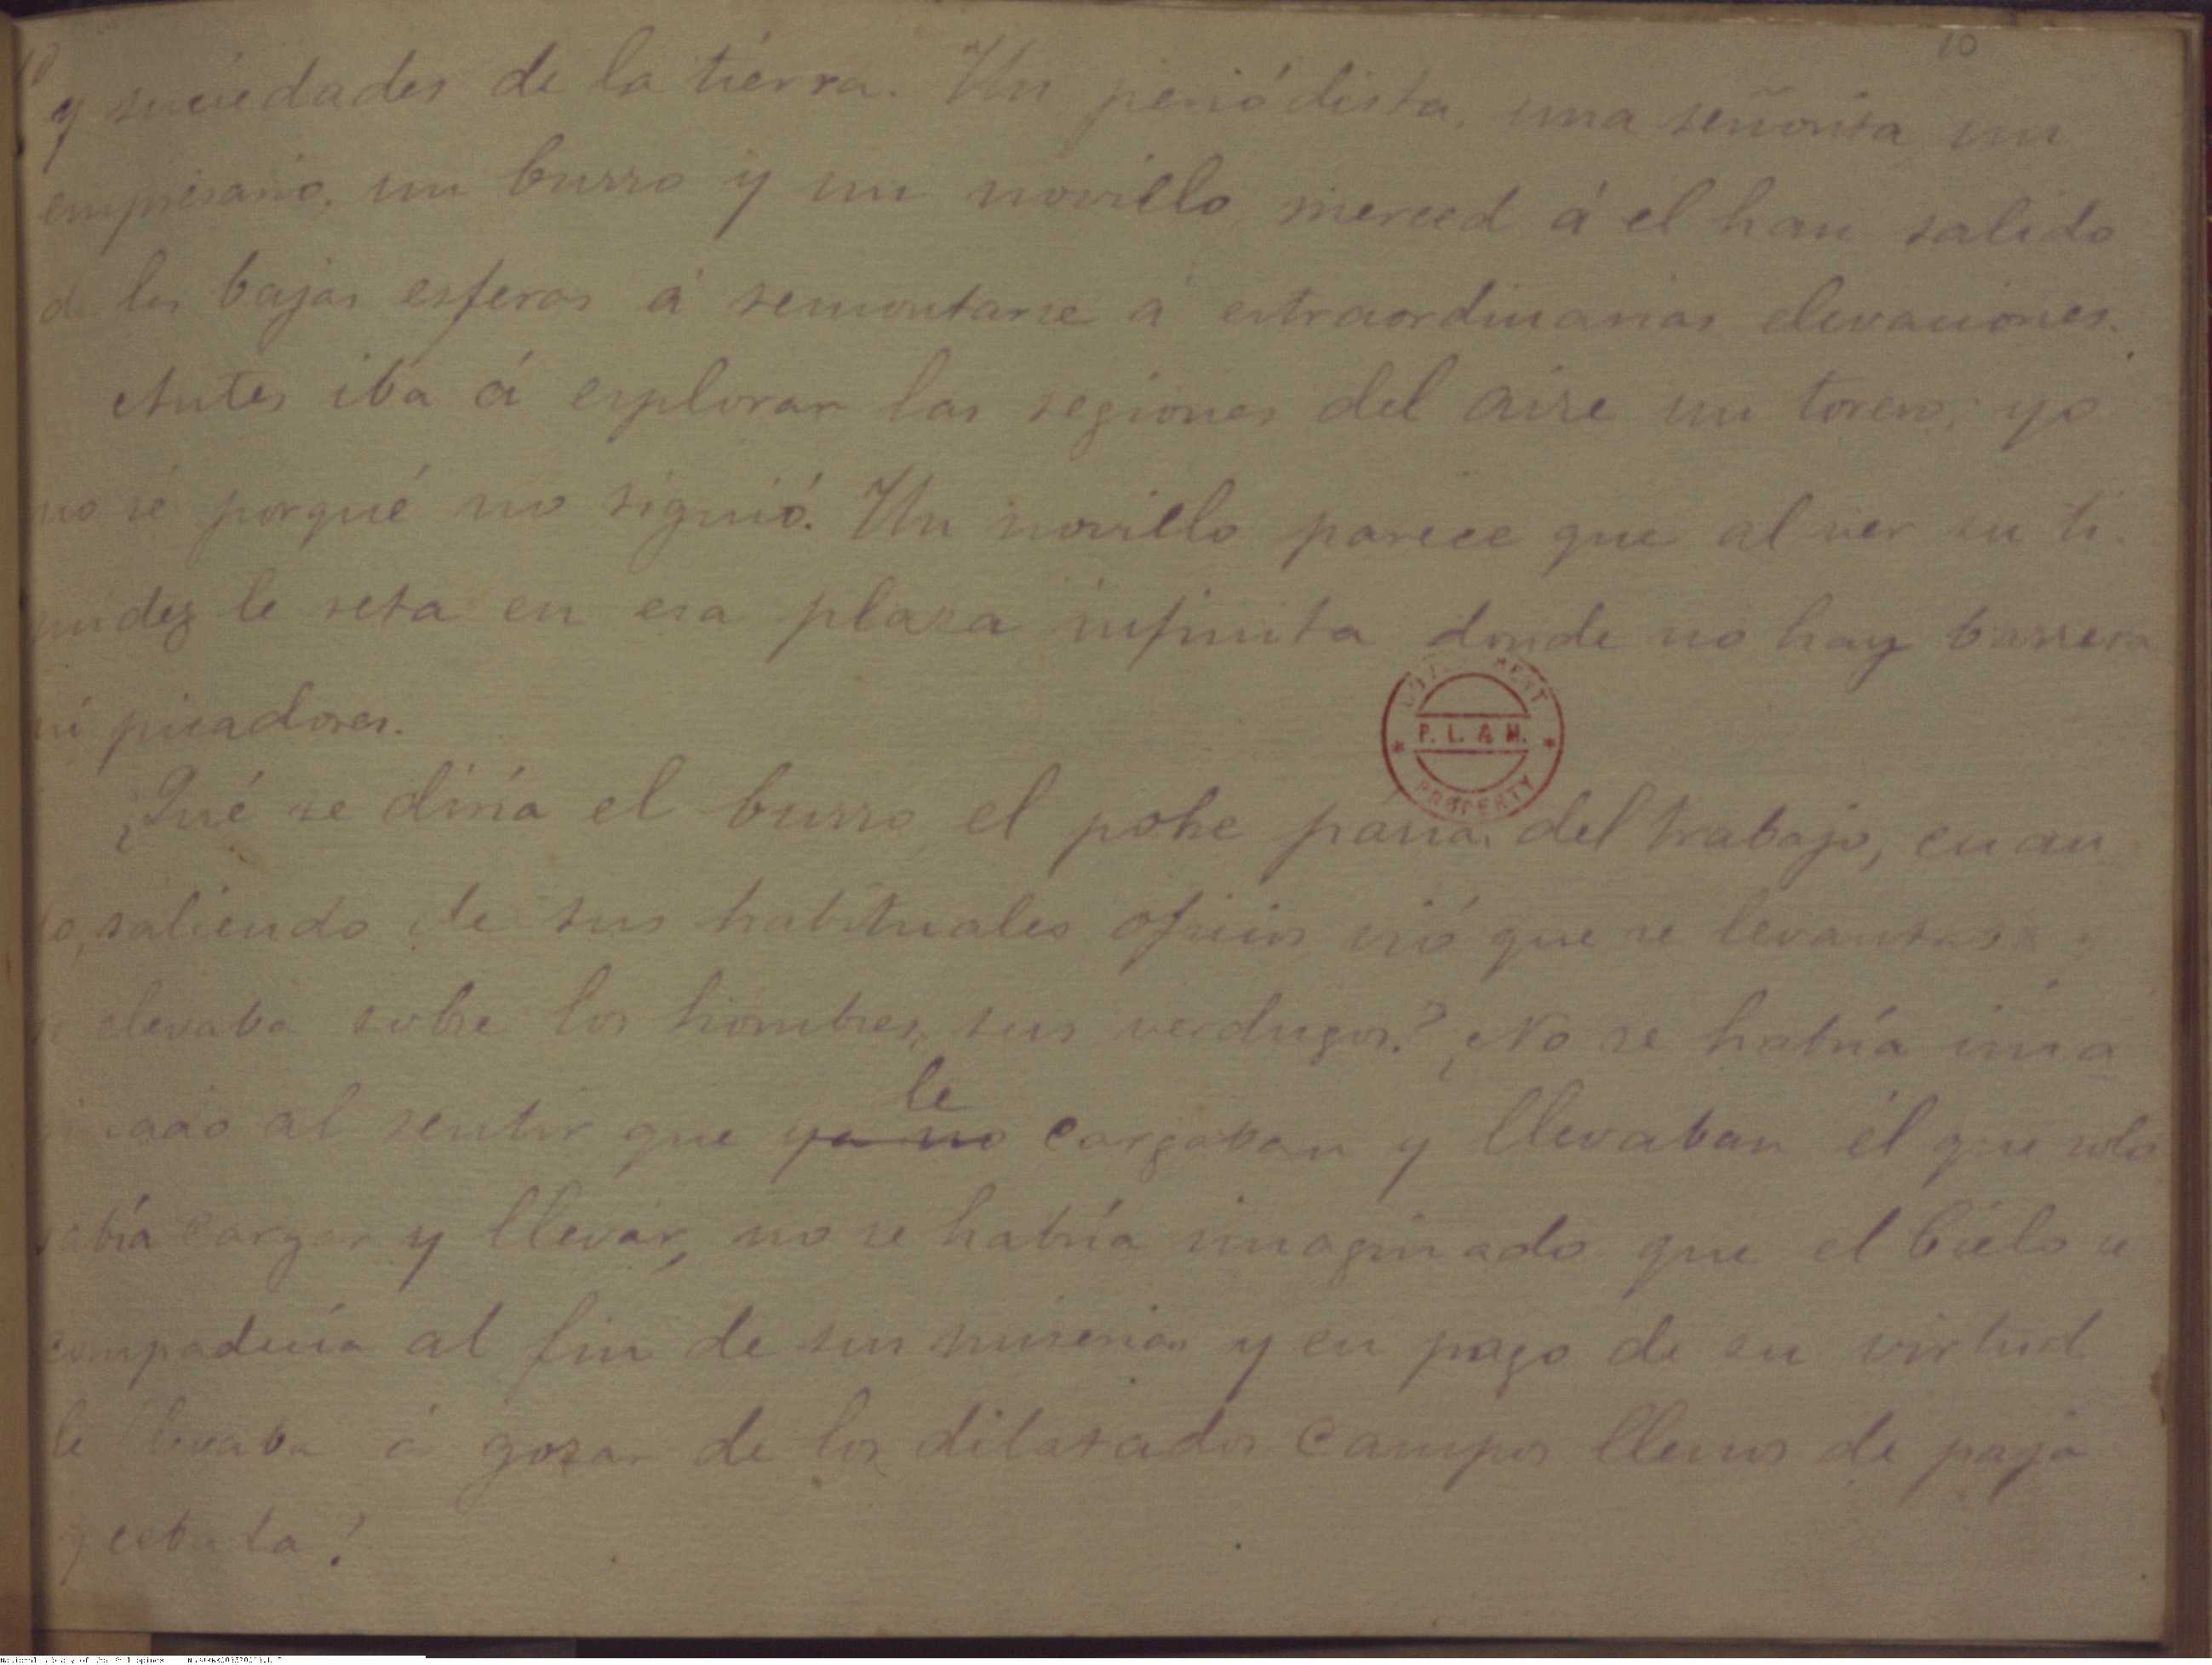 10
y suciedades de la tierra. Un periódista, una señorita un
empresario, un burro y un novillo, merced á el han salido
de las bajas esferas á remontarse á extraordinarias elevaciones.
Antes iba á explorar las regiones del aire un torero; yo
no sé porqué no siguió. Un novillo parece que al ver su ti-
midez le reta en esa plaza infinita donde no hay barrera
ni picadores.
¿Qué se diría el burro el pobre paria del trabajo, cuan
do, saliendo de sus habituales oficios vió que se levantaba
se elevaba sobre los hombres, sus verdugos? ¿No se habría ima
le
ginado al sentir que ya no cargaban y llevaban él que solo
sabía cargar y llevar, no se habría imaginado que el Cielo se
compadecía al fin de sus miserias y en pago de su virtud
le llevaba á gozar de los dilatados campos llenos de paja
y cebada?
P. L. & M.
PROPERTY